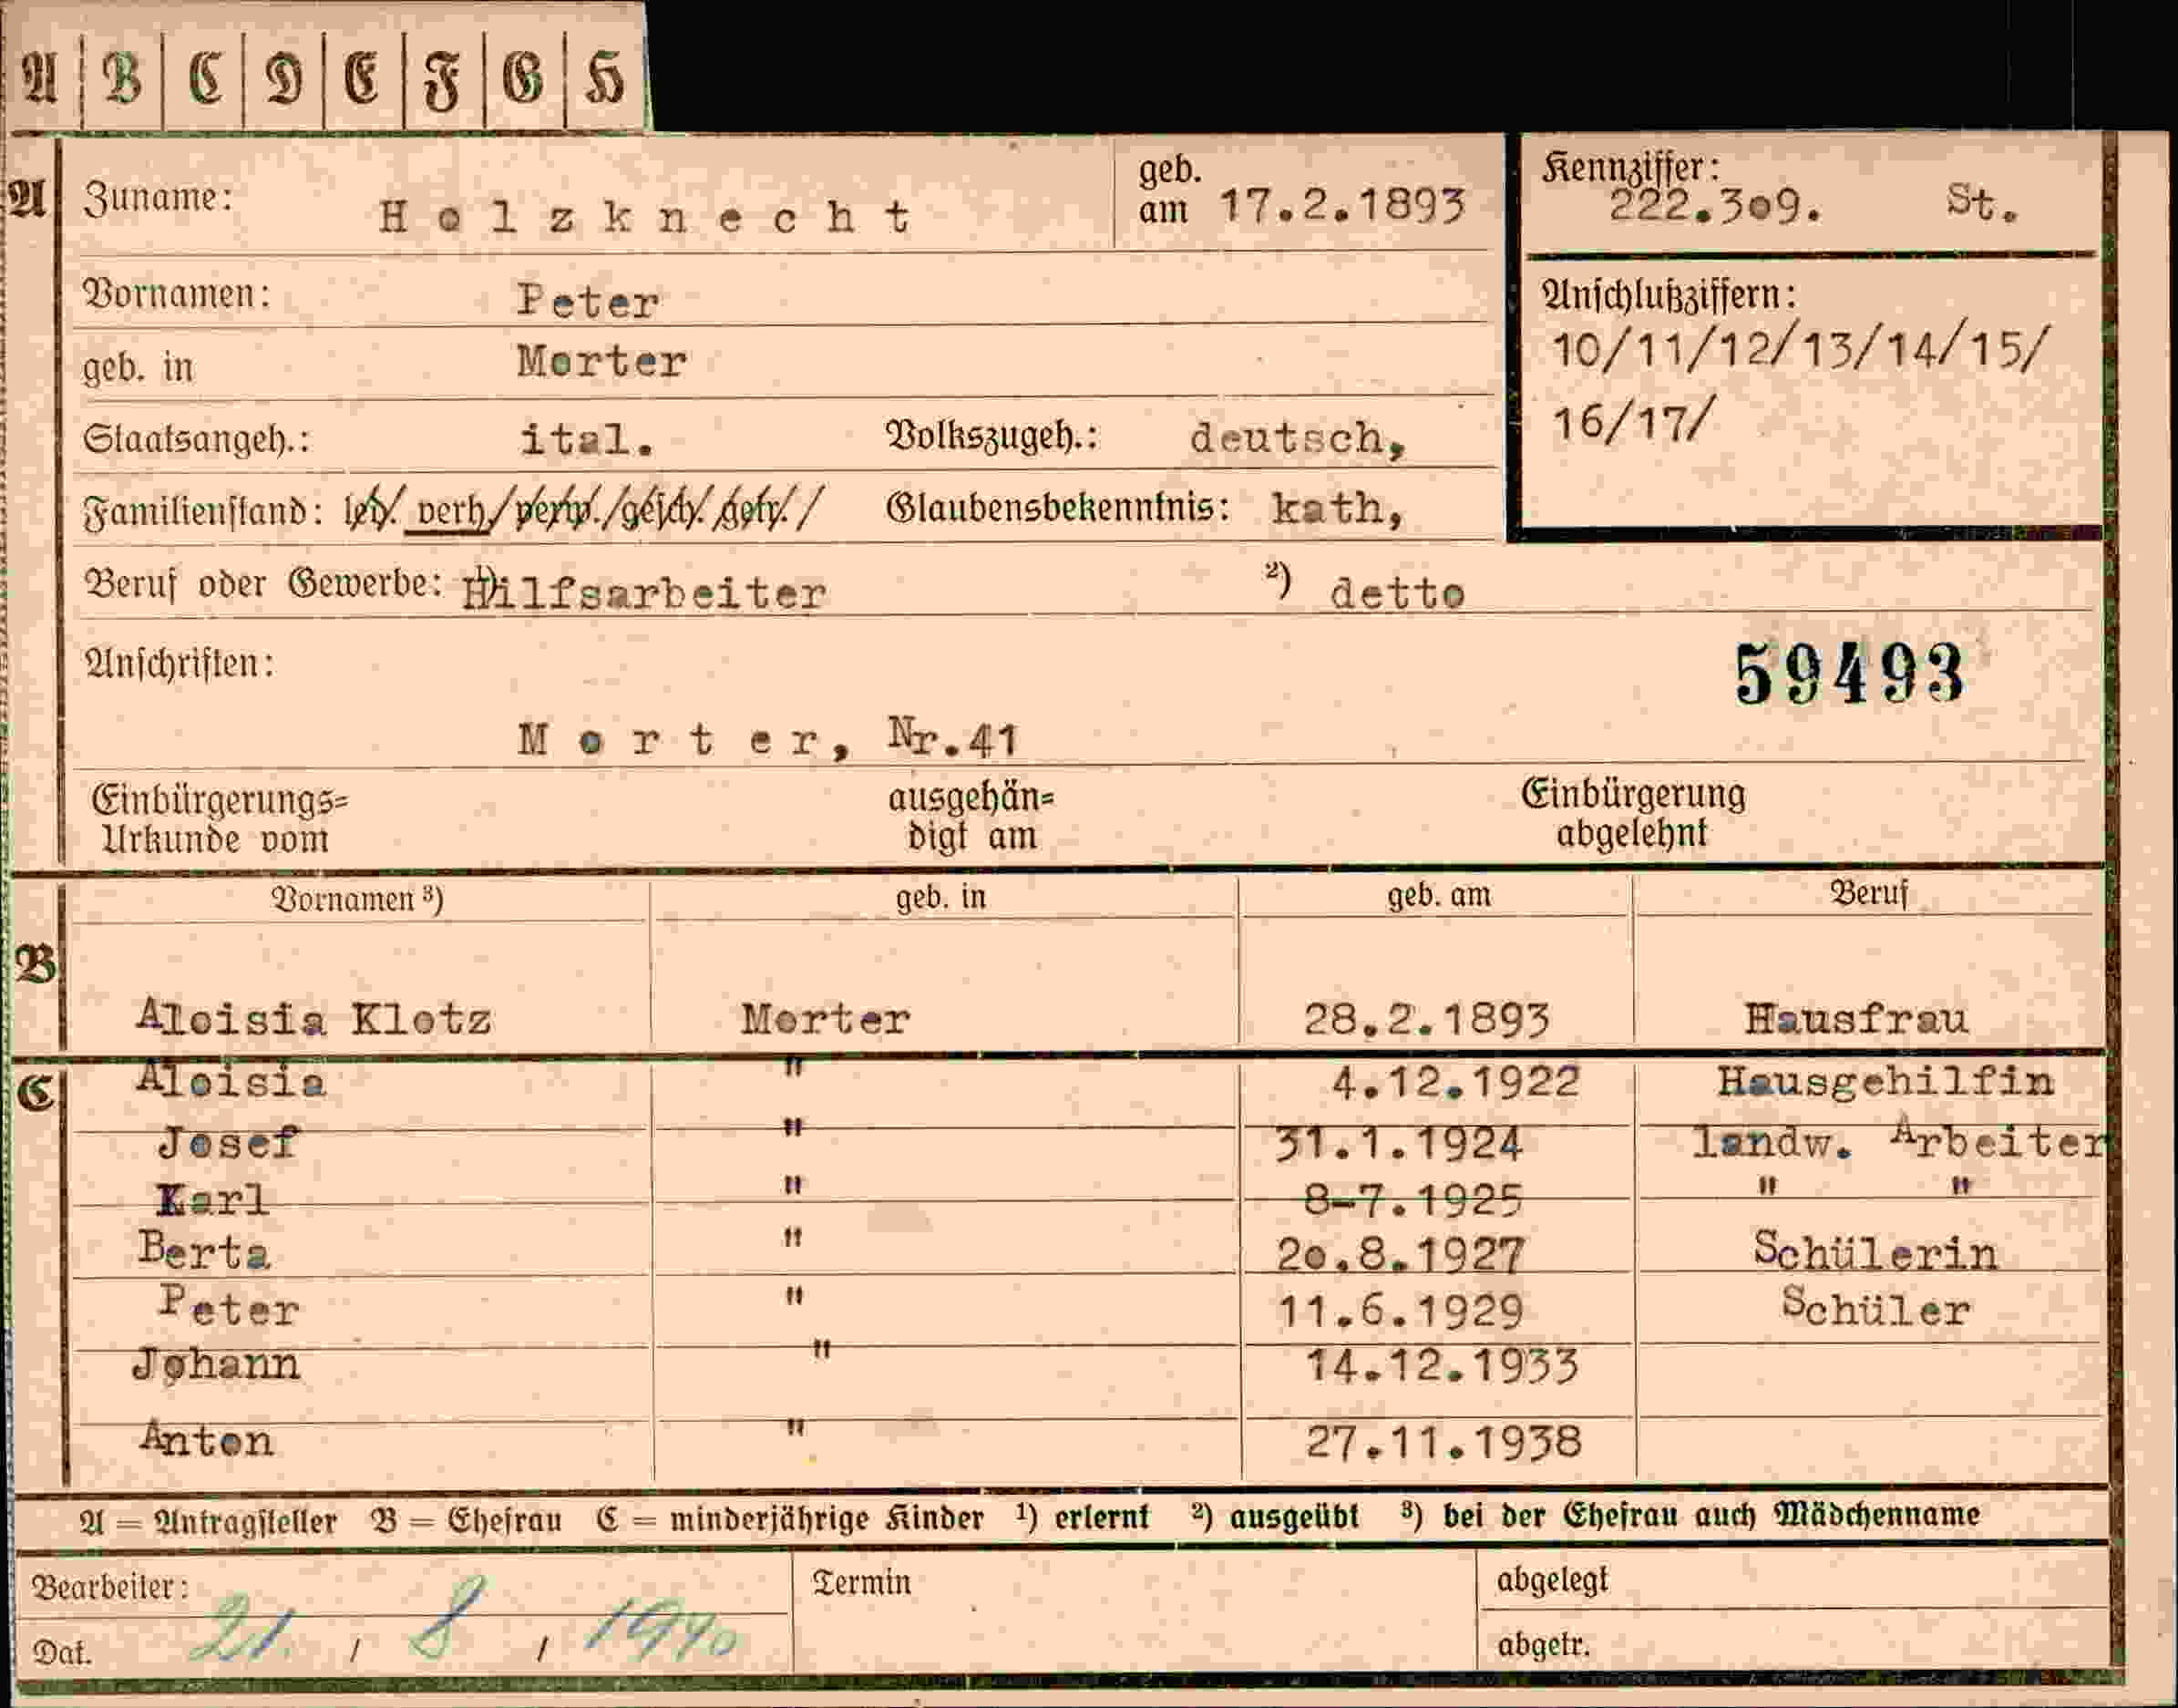 A B C D E F G H
A Zuname: Holzknecht geb. am 17.2.1893
Kennziffer: 222.309. St.
Vornamen: Peter
Anschlußziffern:
10/11/12/13/14/15/
16/17/
geb. in Morter
Staatsangeh.: ital. Volkszugeh.: deutsch,
Familienstand: led./verh/verw./gesch./getr./ Glaubensbekenntnis: kath,
Beruf oder Gewerbe: ¹) Hilfsarbeiter ²) detto
Anschriften:
59493
Morter, Nr.41
Einbürgerungs= ausgehän= Einbürgerung
Urkunde vom digt am abgelehnt
Vornamen ³) geb. in geb. am Beruf
B
Aloisia Klotz Morter 28.2.1893 Hausfrau
C Aloisia " 4.12.1922 Hausgehilfin
Josef " 31.1.1924 landw. Arbeiter
Karl " 8-7.1925 " "
Berta " 20.8.1927 Schülerin
Peter " 11.6.1929 Schüler
Johann " 14.12.1933
Anton " 27.11.1938
A = Antragsteller B = Ehefrau C = minderjährige Kinder ¹) erlernt ²) ausgeübt ³) bei der Ehefrau auch Mädchenname
Bearbeiter: Termin abgelegt
Dat. 21. / 8 / 1940 abgetr.